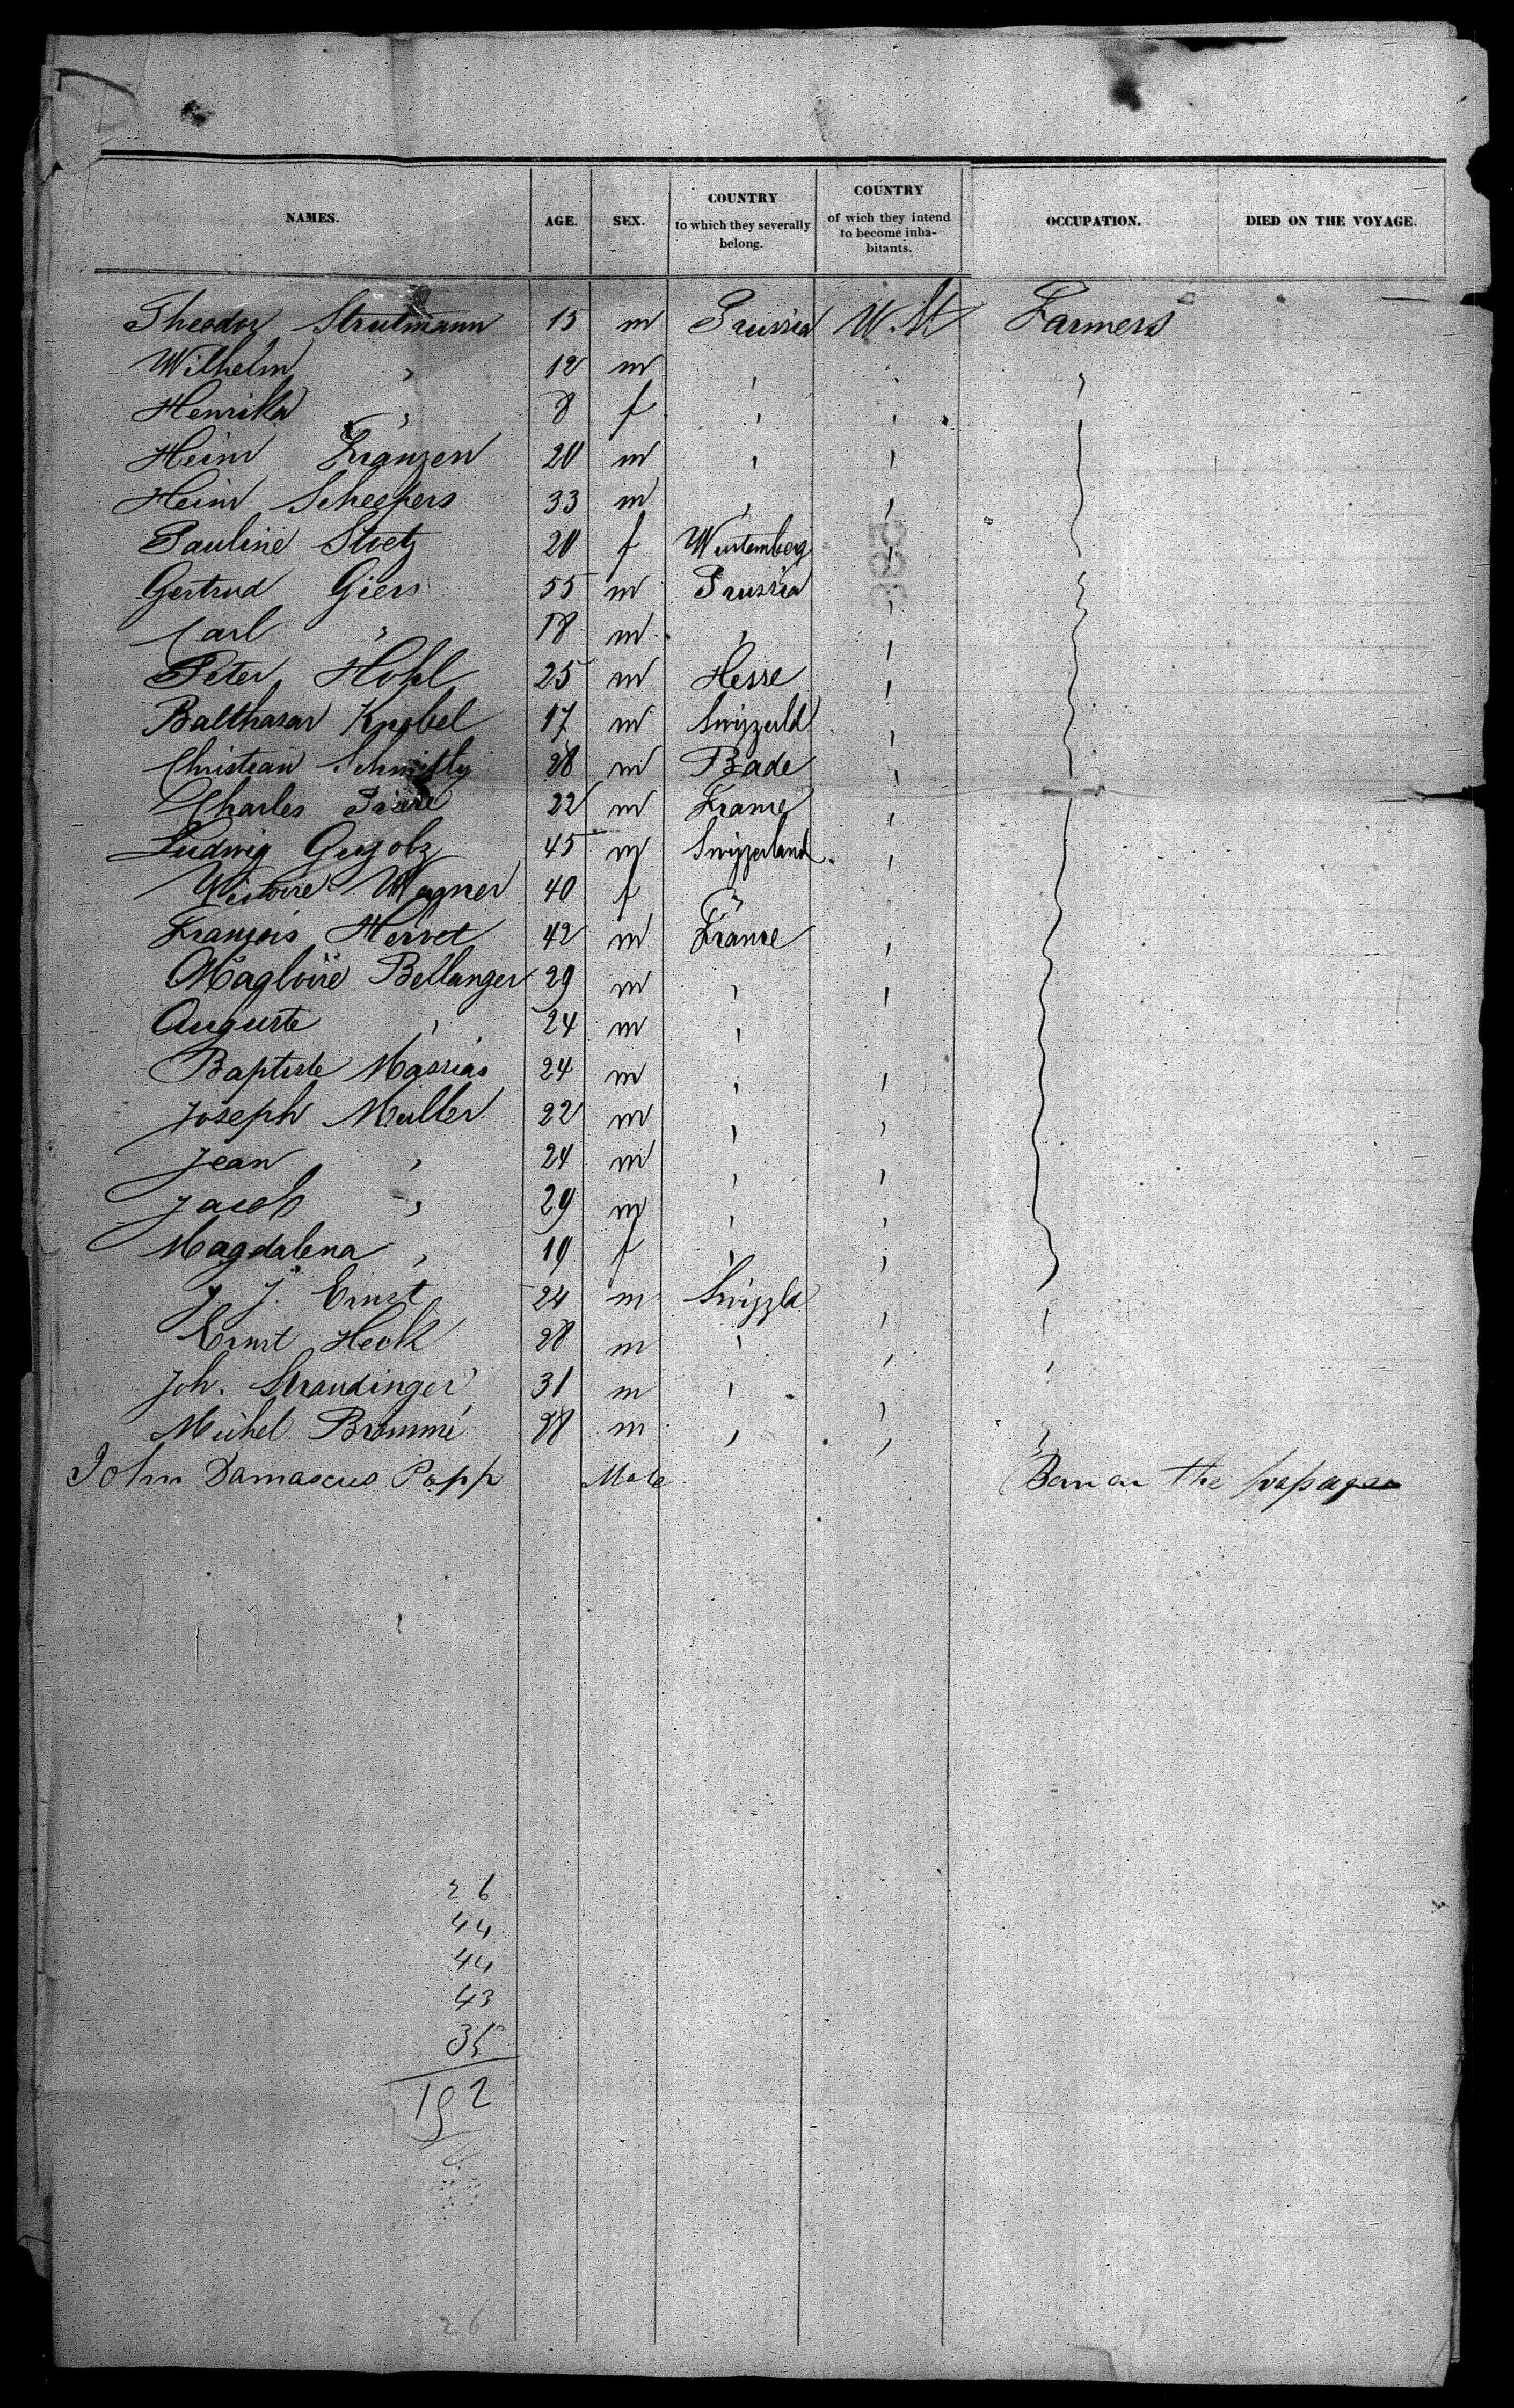 NAMES. AGE. SEX. COUNTRY to which they severally belong. COUNTRY of wich they intend to become inhabitants. OCCUPATION. DIED ON THE VOYAGE.
Theodor Strutmann 15 m Prussia U. St Farmers
Wilhelm " 12 m " "
Henrika " 8 f " "
Heinr Franzen 20 m " "
Heinr Scheepers 33 m " "
Pauline Stoetz 20 f Wurtemberg "
Gertrud Giers 55 m Prussia "
Carl " 18 m " "
Peter Hohl 25 m Hesse "
Balthasar Knobel 17 m Swizzerld "
Christian 28 m Bade "
Charles 22 m France "
Ludwig 45 m Swizzerland "
Victoire Wagner 40 f " "
François Hervet 42 m France "
Magloire Bellanger 29 m " "
Auguste " 24 m "
Baptiste Massias 24 m " "
Joseph Muller 22 m " "
Jean " 24 m " "
Jacob " 29 m " "
Magdalena " 19 f " "
J. J. Ernst 24 m Swizzld "
Ernst Heck 28 m " "
Joh. Straudinger 31 m " "
Michel Brommé 28 m " "
John Damascus Popp Male Born on the passage
26
44
44
43
35
192
26